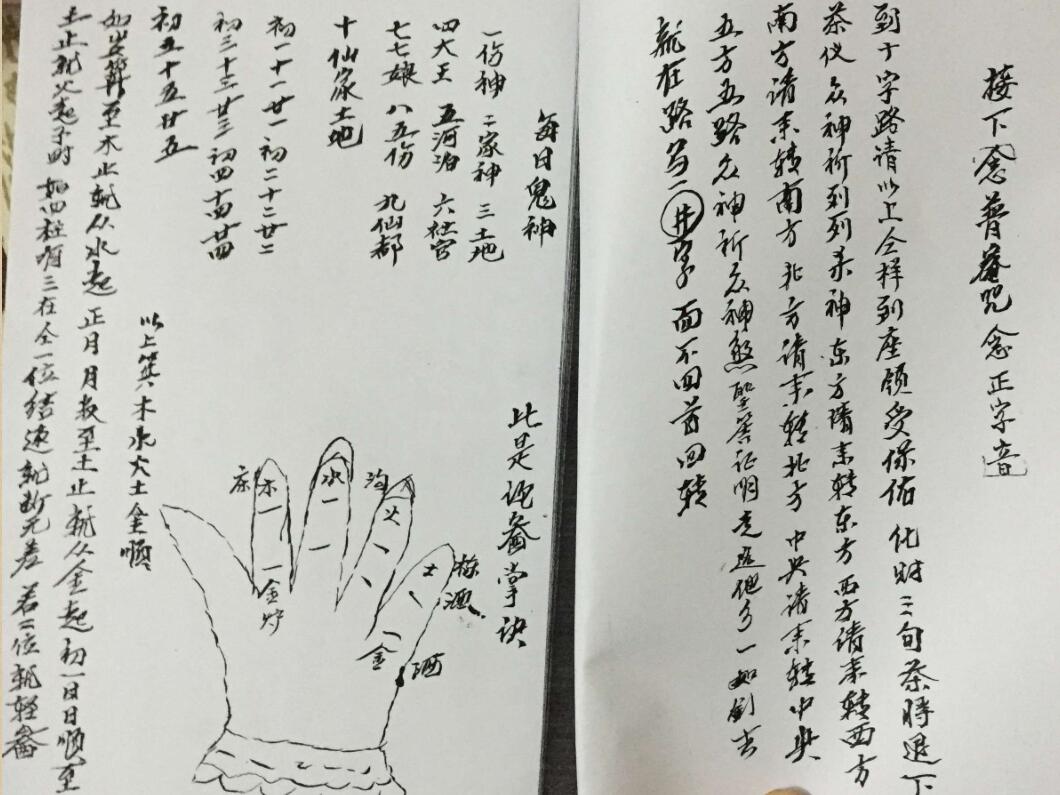 接下念普庵咒念正字音
到十字路请以上仝样到座领受保佑 化财三旬茶時退下
茶仪众神祈列列杀神东方请来转东方西方请来转西方
南方请来转南方北方请来转北方 中央请来转中央
五方五路众神祈众神煞聖筶证明
龍在路写一井字 面不回首回转
每日鬼神
一伤神 二家神 三土地
四大王 五河泊 六社官
七七娘 八五伤 九仙都
十仙家土地
初一十一廿一初二十二廿二
初三十三廿三初四十四廿四
初五十五廿五
以上算木水火土金順
如岁算至木止就从水起 正月月数至土止就从金起初一日日顺至
土止就火起子时 如四柱有三在仝一位 就断无差 若二位就轻
此是 掌诀
木
床
水
火
沟
土
栋
酒
金
金炉